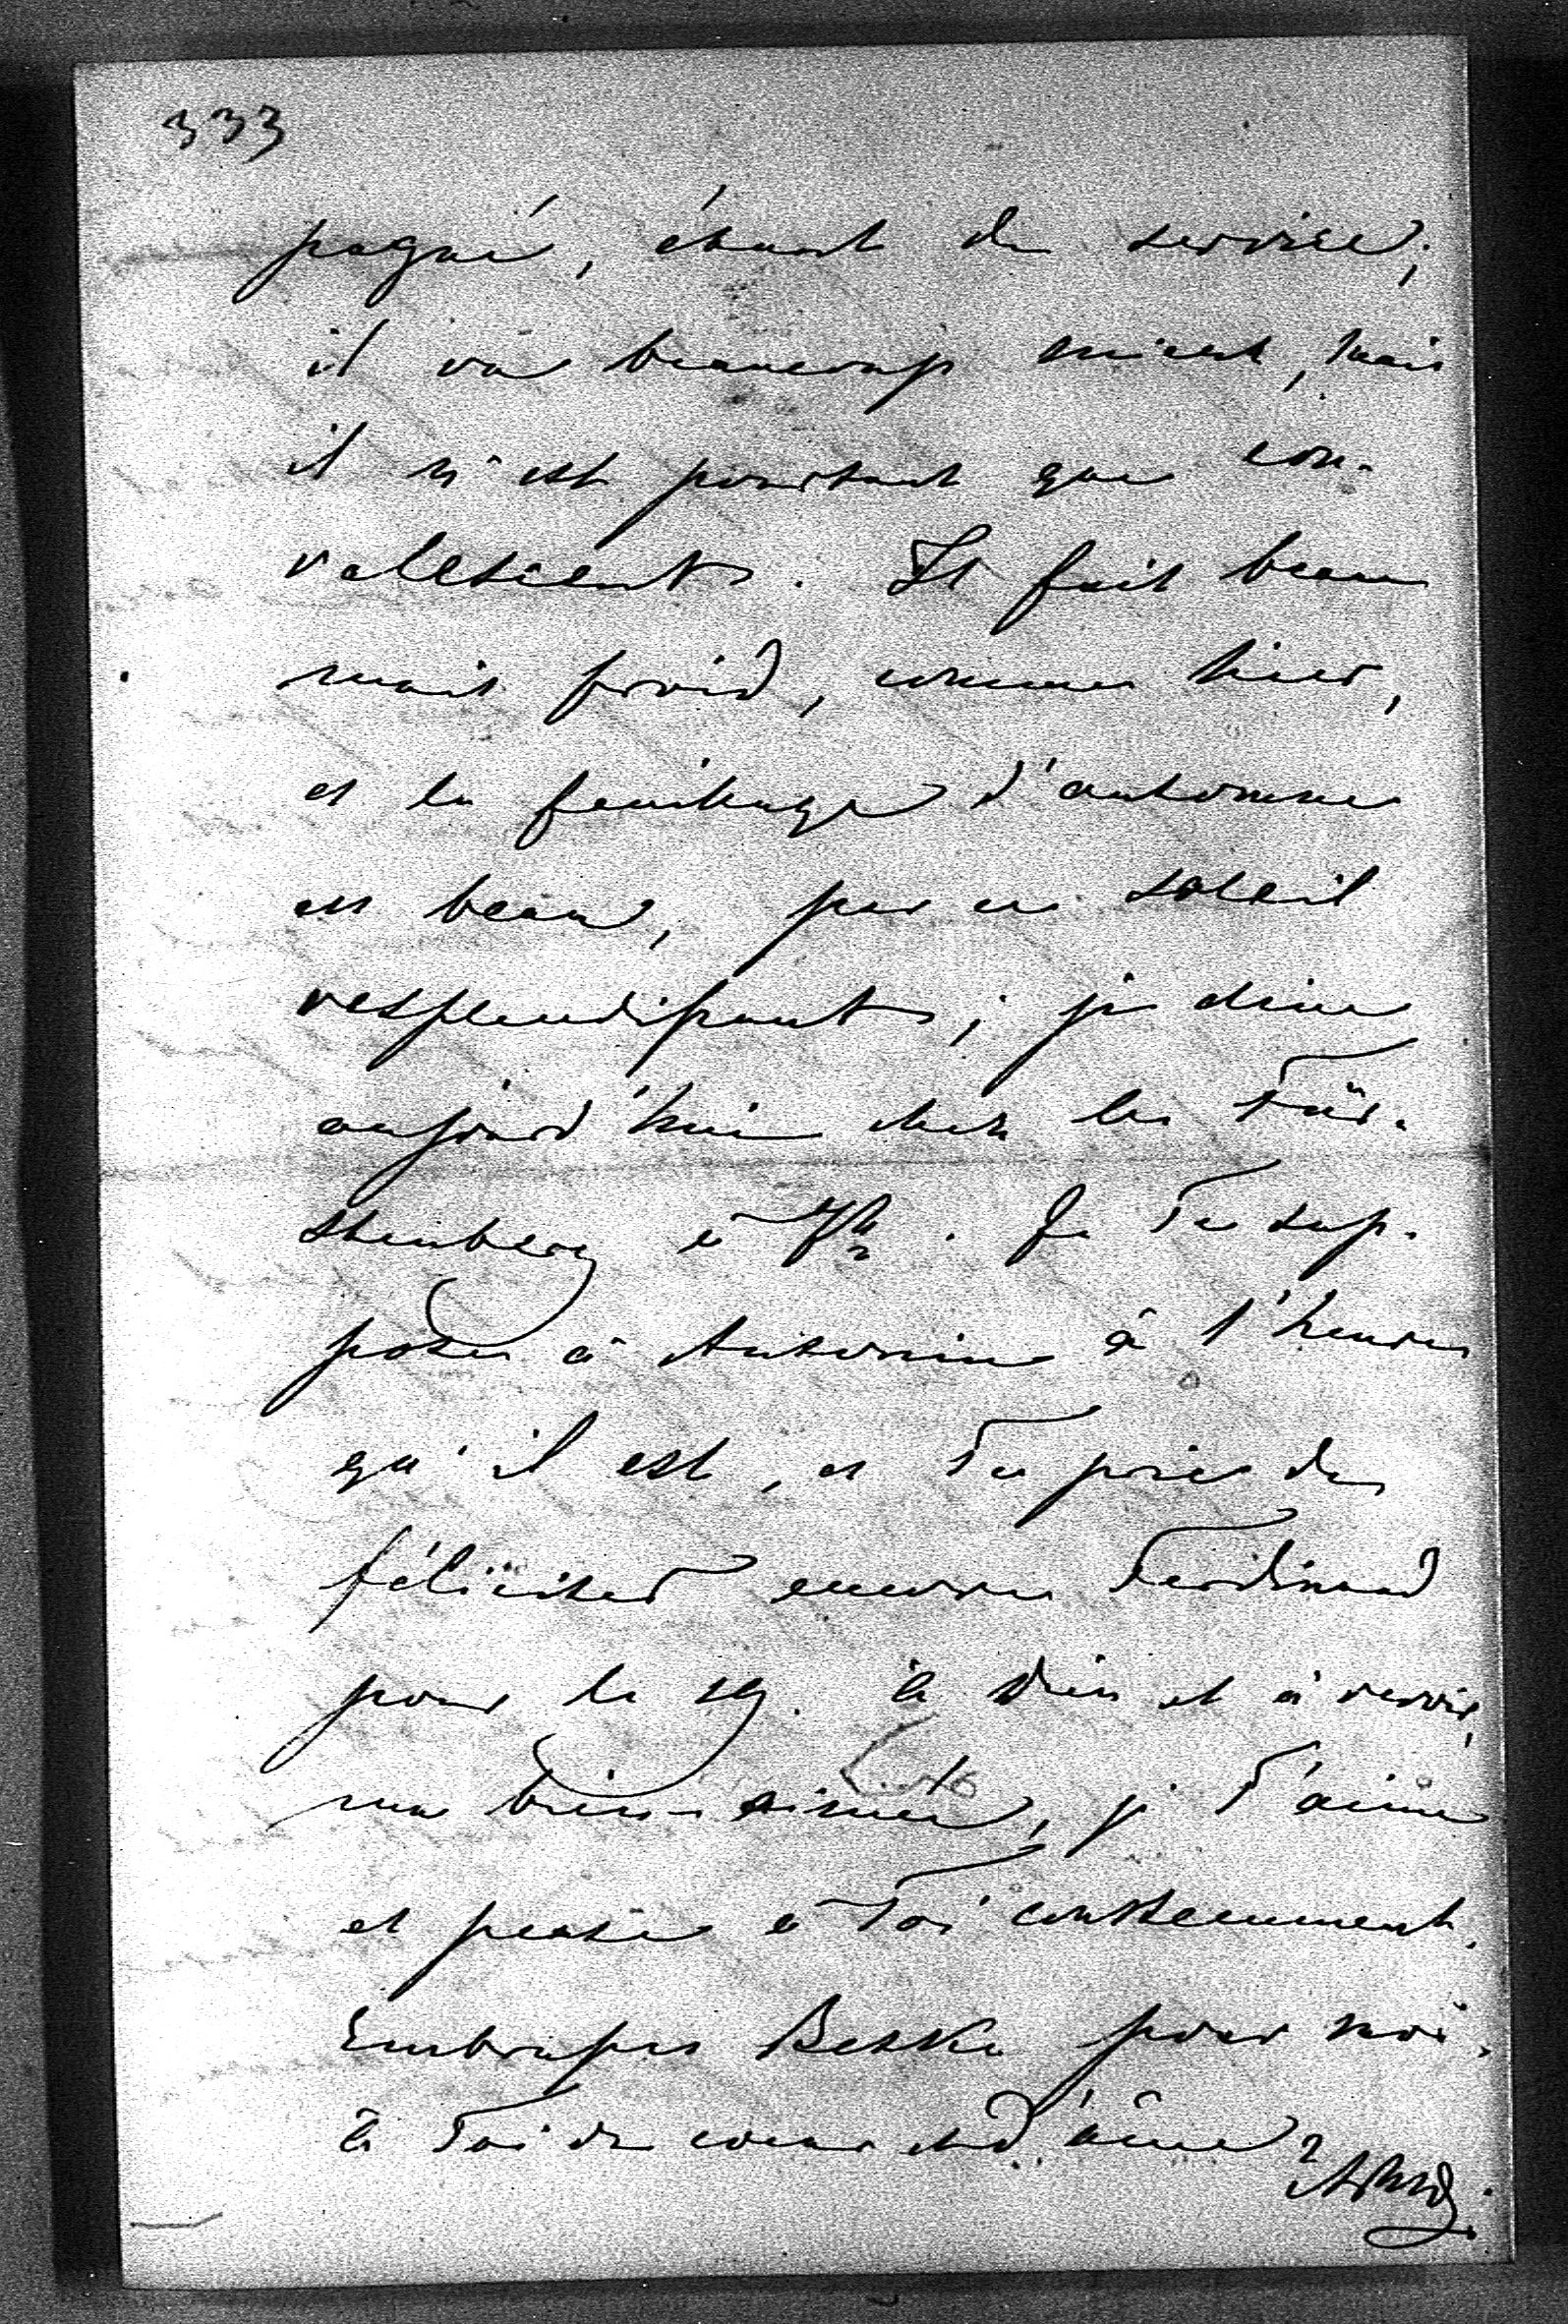 333
pagné, étant de service;
il va beaucoup mieux, mais
il n'est pourtant que con-
vallescent. Il fait beau
mais froid, comme hier,
et le feuillage d'automne
est beau, par ce soleil
resplendissant; je dine
aujourd'hui chez les Für-
stenberg à 7h. Je Te sup-
pose à Antonin à l'heure
qu'il est, et Te prie de
féliciter encore Ferdinand
pour le 19. à Dieu et à revoir,
ma bien-aimée, je T'aime
et pense à Toi constemment.
Embrasses Betka pour moi.
à Toi de coeur et d'âme